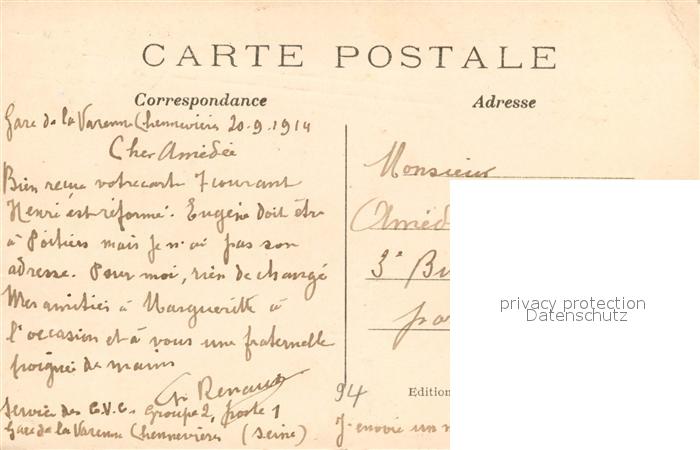 CARTE POSTALE
Correspondance
Adresse
Gare de la Varenne Chennevières 20.9.1914
Cher Amédée
Bien reçue votre carte 7 courant
Henri est réformé. Eugène doit être
à Poitiers mais je n'ai pas son
adresse. Pour moi, rien de changé
Mes amitiés à Marguerite à
l'occasion et à vous une fraternelle
poignée de mains
Renaud
Service des G.V.C. Groupe 2, poste 1
Gare de la Varenne Chennevières (Seine)
Monsieur
Améd
3e Bu
par
94
Edition
J'envoie un
privacy protection
Datenschutz